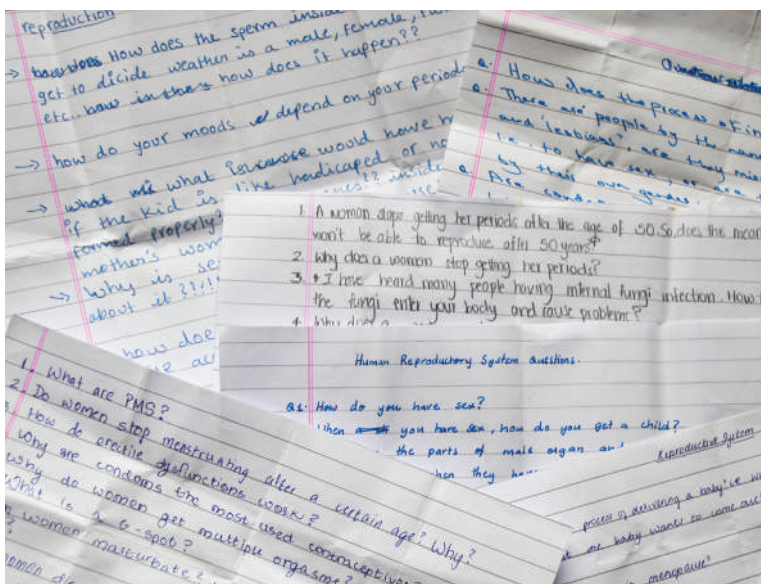 reproduction
→ How does the sperm inside
get to dicide weather is a male, female,
etc.. how does it happen??
→ how do your moods depend on your periods
→ what would have
if the kid is like handicaped or
formed properly? inside
mother's
→ Why is
about it ?!?!
how doe
Q. How does the process of in
Q. There are people by the nam
and 'lesbians', are they
i.e. to have sex, or are
by their own gender.
Q. Are
1. A woman stops getting her periods after the age of 50. So, does the mean
won't be able to reproduce after 50 years?
2. Why does a woman stop getting her periods?
3. I have heard many people having internal fungi infection. How
the fungi enter your body and cause problems?
4. Why does a
Human Reproductory System Questions.
Q1. How do you have sex?
When you have sex, how do you get a child?
the parts of male organ and
hen they hav
1. What are PMS?
2. Do women stop menstruating after a certain age? Why?
3. How do erectile dysfunctions work?
Why are condoms the most used contraceptives?
Why do women get multiple orgasms?
What is a G-spot?
women masturbate?
women
Reproductive System
process of delivering a baby? i.e.
baby wants to come out
menopause?